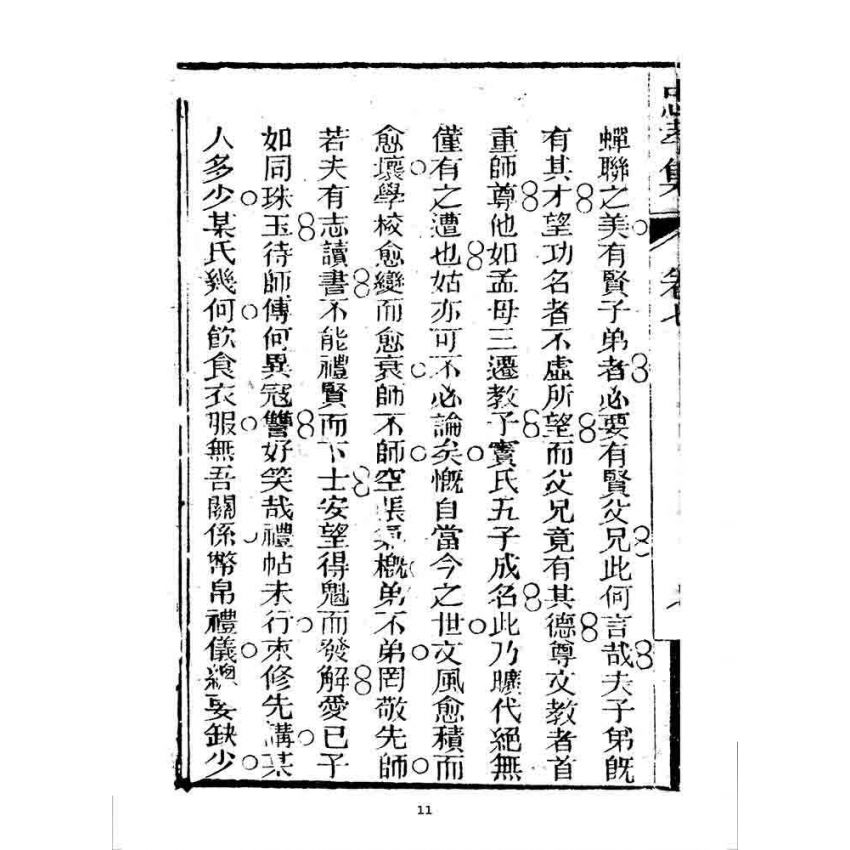 忠孝集 卷七
蟬聯之美有賢子弟者必要有賢父兄此何言哉夫子弟既
有其才望功名者不虛所望而父兄竟有其德尊文教者首
重師尊他如孟母三遷教子竇氏五子成名此乃曠代絕無
僅有之遭也姑亦可不必論矣慨自當今之世文風愈積而
愈壞學校愈變而愈衰師不師空張氣概弟不弟罔敬先師
若夫有志讀書不能禮賢而下士安望得魁而發解愛已子
如同珠玉待師傅何異寇讐好笑哉禮帖未行束修先講某
人多少某氏幾何飲食衣服無吾關係幣帛禮儀總妥缺少
11